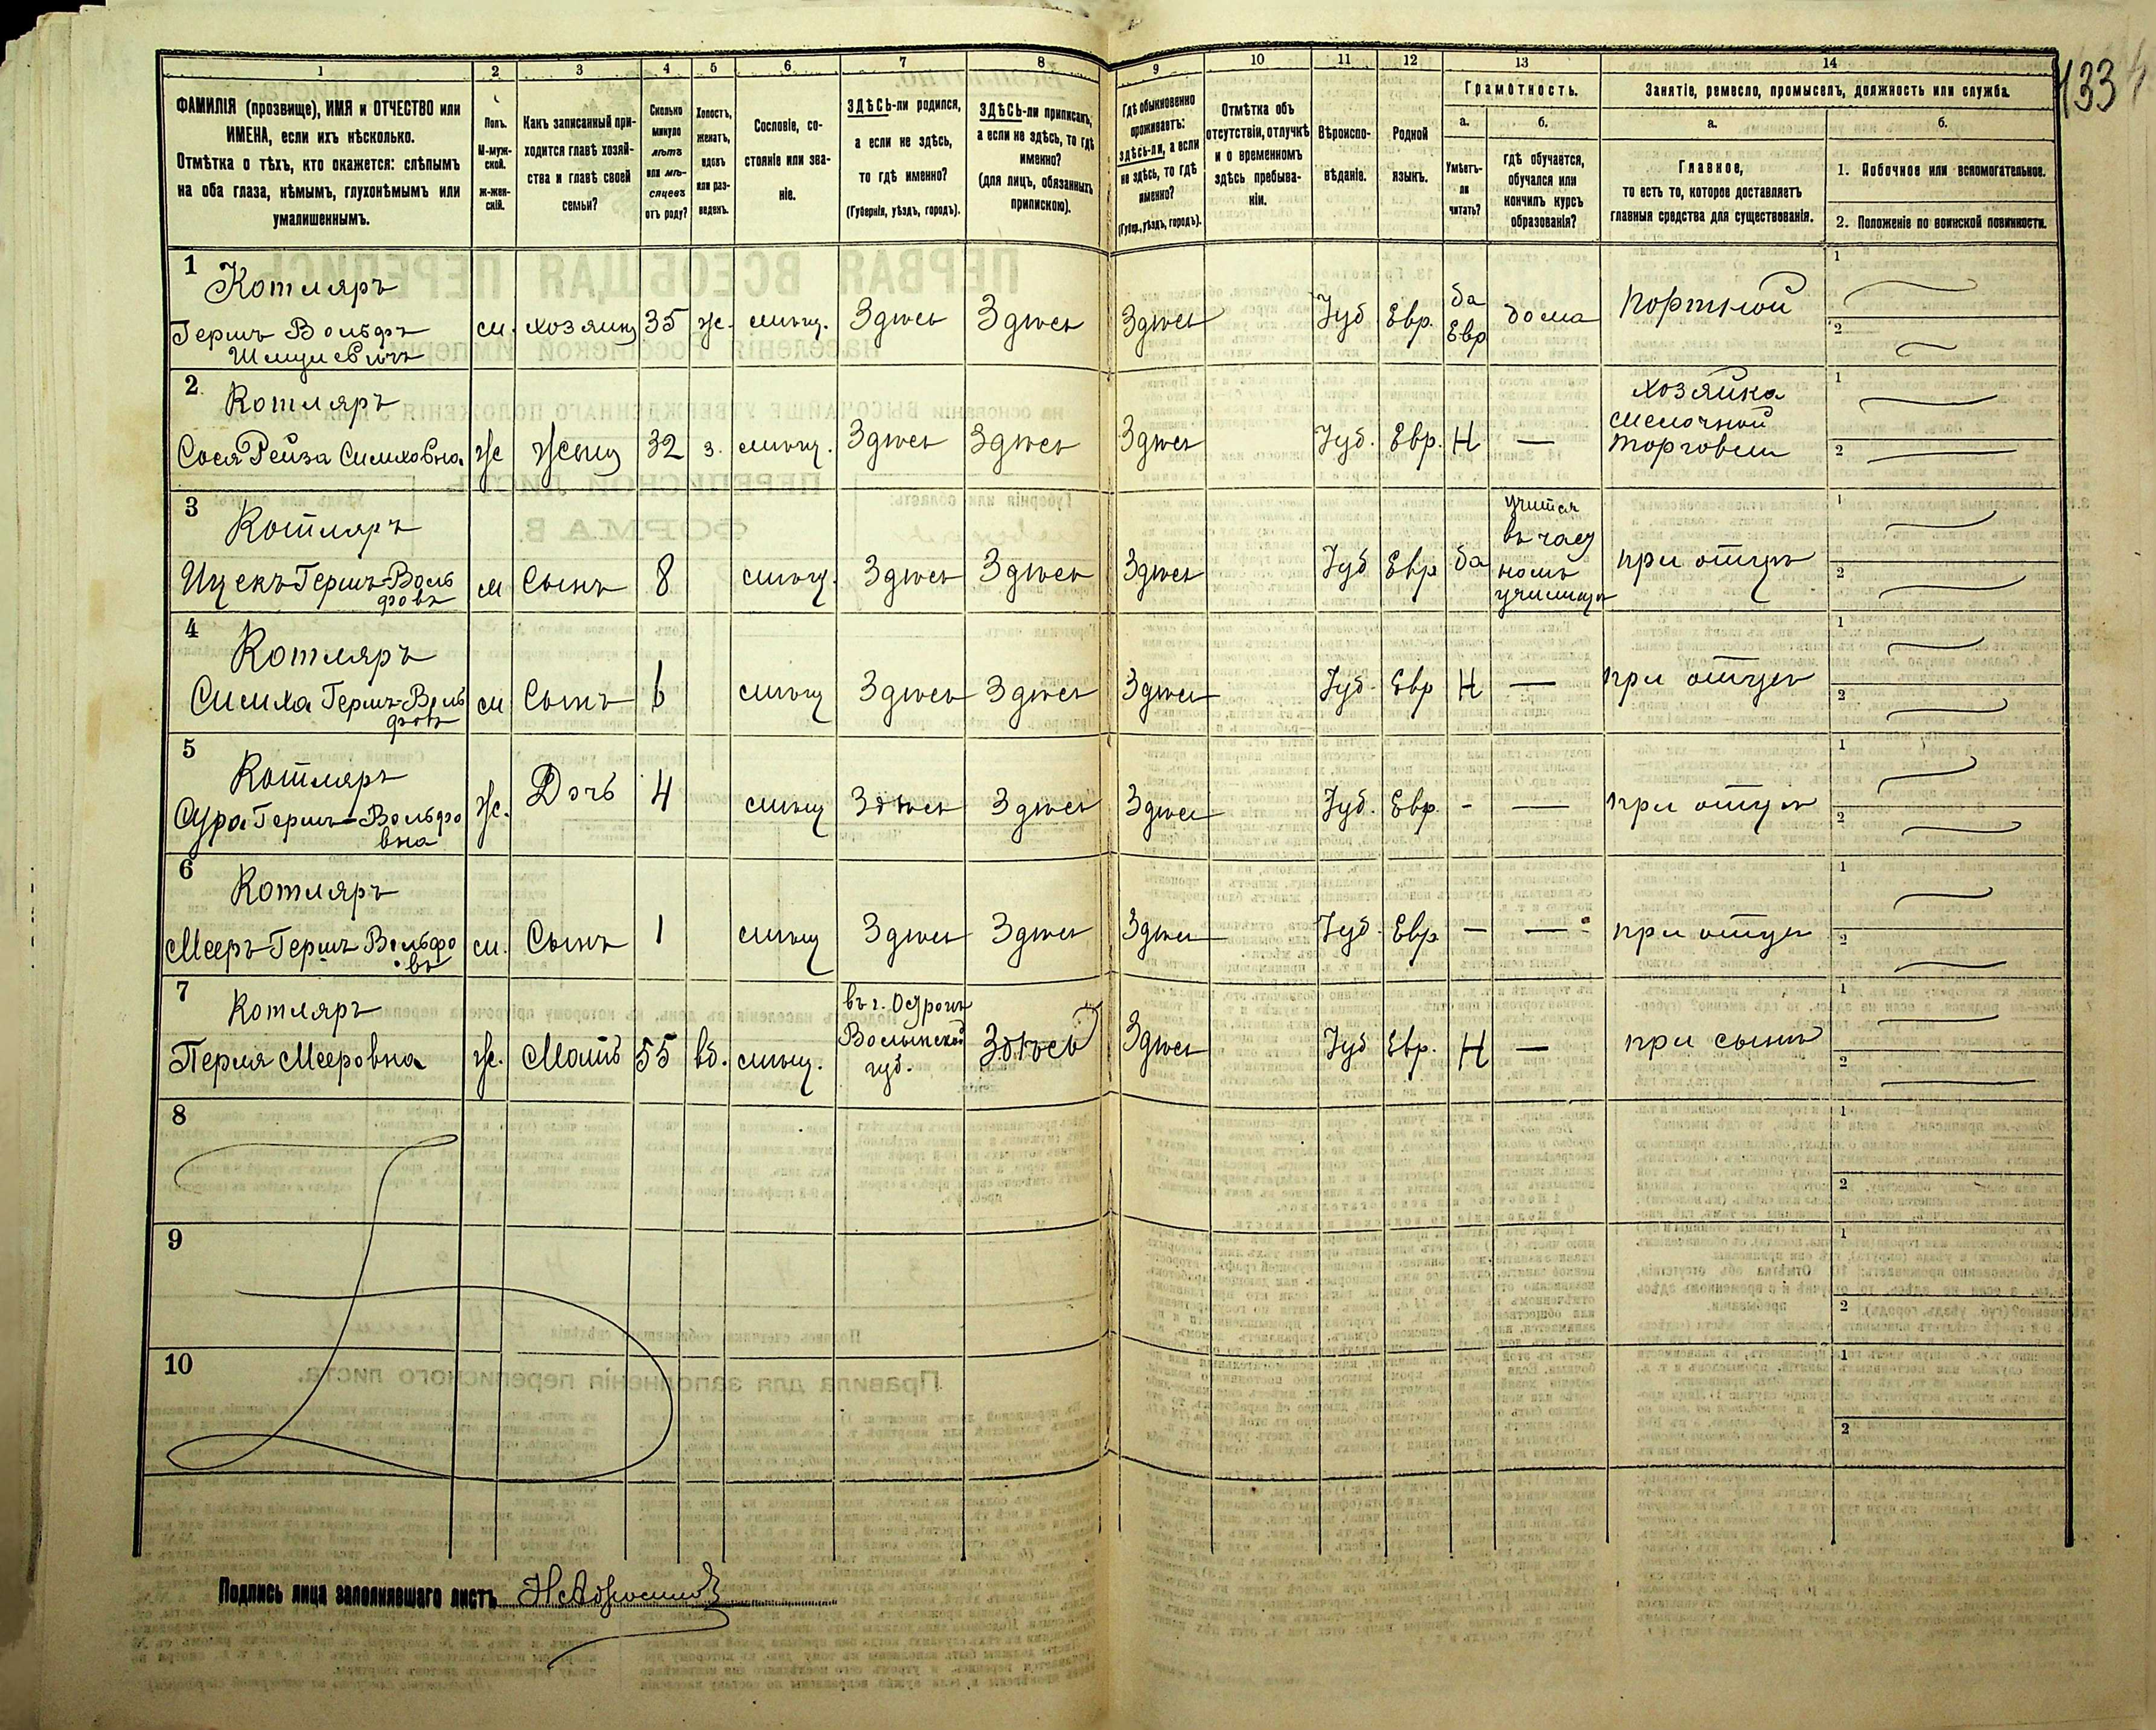 1 2 3 4 5 6 7 8 9 10 11 12 13 14
ФАМИЛІЯ (прозвище), ИМЯ и ОТЧЕСТВО или
ИМЕНА, если ихъ нѣсколько.
Отмѣтка о тѣхъ, кто окажется: слѣпымъ
на оба глаза, нѣмымъ, глухонѣмымъ или
умалишеннымъ.
Полъ.
М-муж-
ской.
Ж-жен-
скій.
Какъ записанный при-
ходится главѣ хозяй-
ства и главѣ своей
семьи?
Сколько
минуло
лѣтъ
или мѣ-
сяцевъ
отъ роду?
Холостъ,
женатъ,
вдовъ
или раз-
веденъ.
Сословіе, со-
стояніе или зва-
ніе.
ЗДѢСЬ-ли родился,
а если не здѣсь,
то гдѣ именно?
(Губернія, уѣздъ, городъ).
ЗДѢСЬ-ли приписанъ,
а если не здѣсь, то гдѣ
именно?
(для лицъ, обязанныхъ
припискою).
Гдѣ обыкновенно
проживаетъ:
здѣсь-ли, а если
не здѣсь, то гдѣ
именно?
(Губер., уѣздъ, городъ).
Отмѣтка объ
отсутствіи, отлучкѣ
и о временномъ
здѣсь пребыва-
ніи.
Вѣроиспо-
вѣданіе.
Родной
языкъ.
Грамотность.
а.
Умѣетъ-
ли
читать?
б.
гдѣ обучается,
обучался или
кончилъ курсъ
образованія?
Занятіе, ремесло, промыселъ, должность или служба.
а.
Главное,
то есть то, которое доставляетъ
главныя средства для существованія.
б.
1. Побочное или вспомогательное.
2. Положеніе по воинской повинности.
133
1
Котляръ
Гершъ Вольфъ
Шмулевичъ
м. хозяинъ 35 ж. мѣщ. Здѣсь Здѣсь Здѣсь Іуд Евр.
да
Евр
дома портной
1
2
2
Котляръ
Сося Рейза Симховна
ж жена 32 з. мѣщ. Здѣсь Здѣсь Здѣсь Іуд. Евр. Н —
хозяйка
мелочной
торговли
1
2
3
Котляръ
Ицекъ Гершъ-Воль
фовъ
м Сынъ 8 мѣщ. Здѣсь Здѣсь Здѣсь Іуд Евр да
учится
въ част
номъ
училищѣ
при отцѣ
1
2
4
Котляръ
Симха Гершъ-Воль
фовъ
м Сынъ 6 мѣщ Здѣсь Здѣсь Здѣсь Іуд Евр Н — при отцѣ
1
2
5
Котляръ
Сура Гершъ-Вольфо
вна
ж. Дочь 4 мѣщ Здѣсь Здѣсь Здѣсь Іуд. Евр. - — при отцѣ
1
2
6
Котляръ
Мееръ-Гершъ Вольфо
въ
м. Сынъ 1 мѣщ Здѣсь Здѣсь Здѣсь Іуд. Евр — — при отцѣ
1
2
7
Котляръ
Перля Мееровна
ж. Мать 55 вд. мѣщ.
въ г. Острогѣ
Волынской
губ.
Здѣсь Здѣсь Іуд Евр. Н — при сынѣ
1
2
8
1
2
9
1
2
10
1
2
Подпись лица заполнявшаго листъ